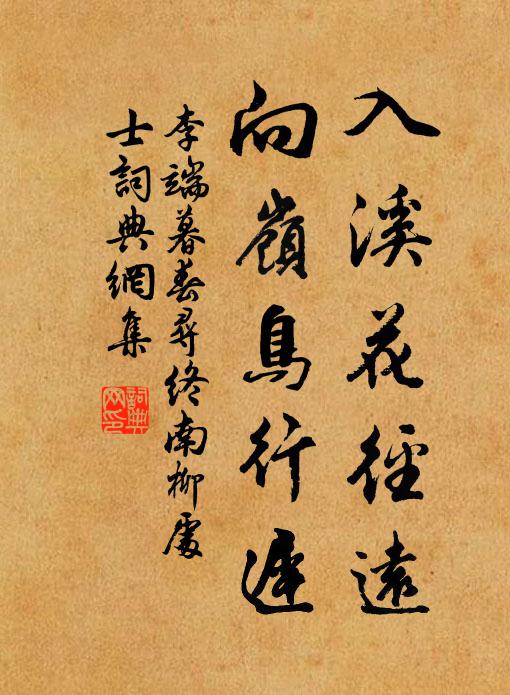 入溪花徑遠
向嶺鳥行遲
李端暮春尋終南柳處
士詞典網集
詞典
网印